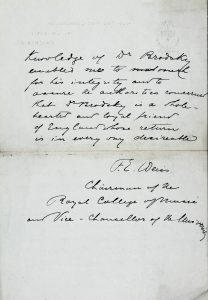 Knowledge of Dr Brodsky
enables me to
for his integrity and to
assure the authorities concerned
that Dr Brodsky is a whole-
hearted and loyal friend
of England whose return
is in every way desirable
F. E. Weiss
Chairman of the
Royal College of Music
and Vice-Chancellor of the University